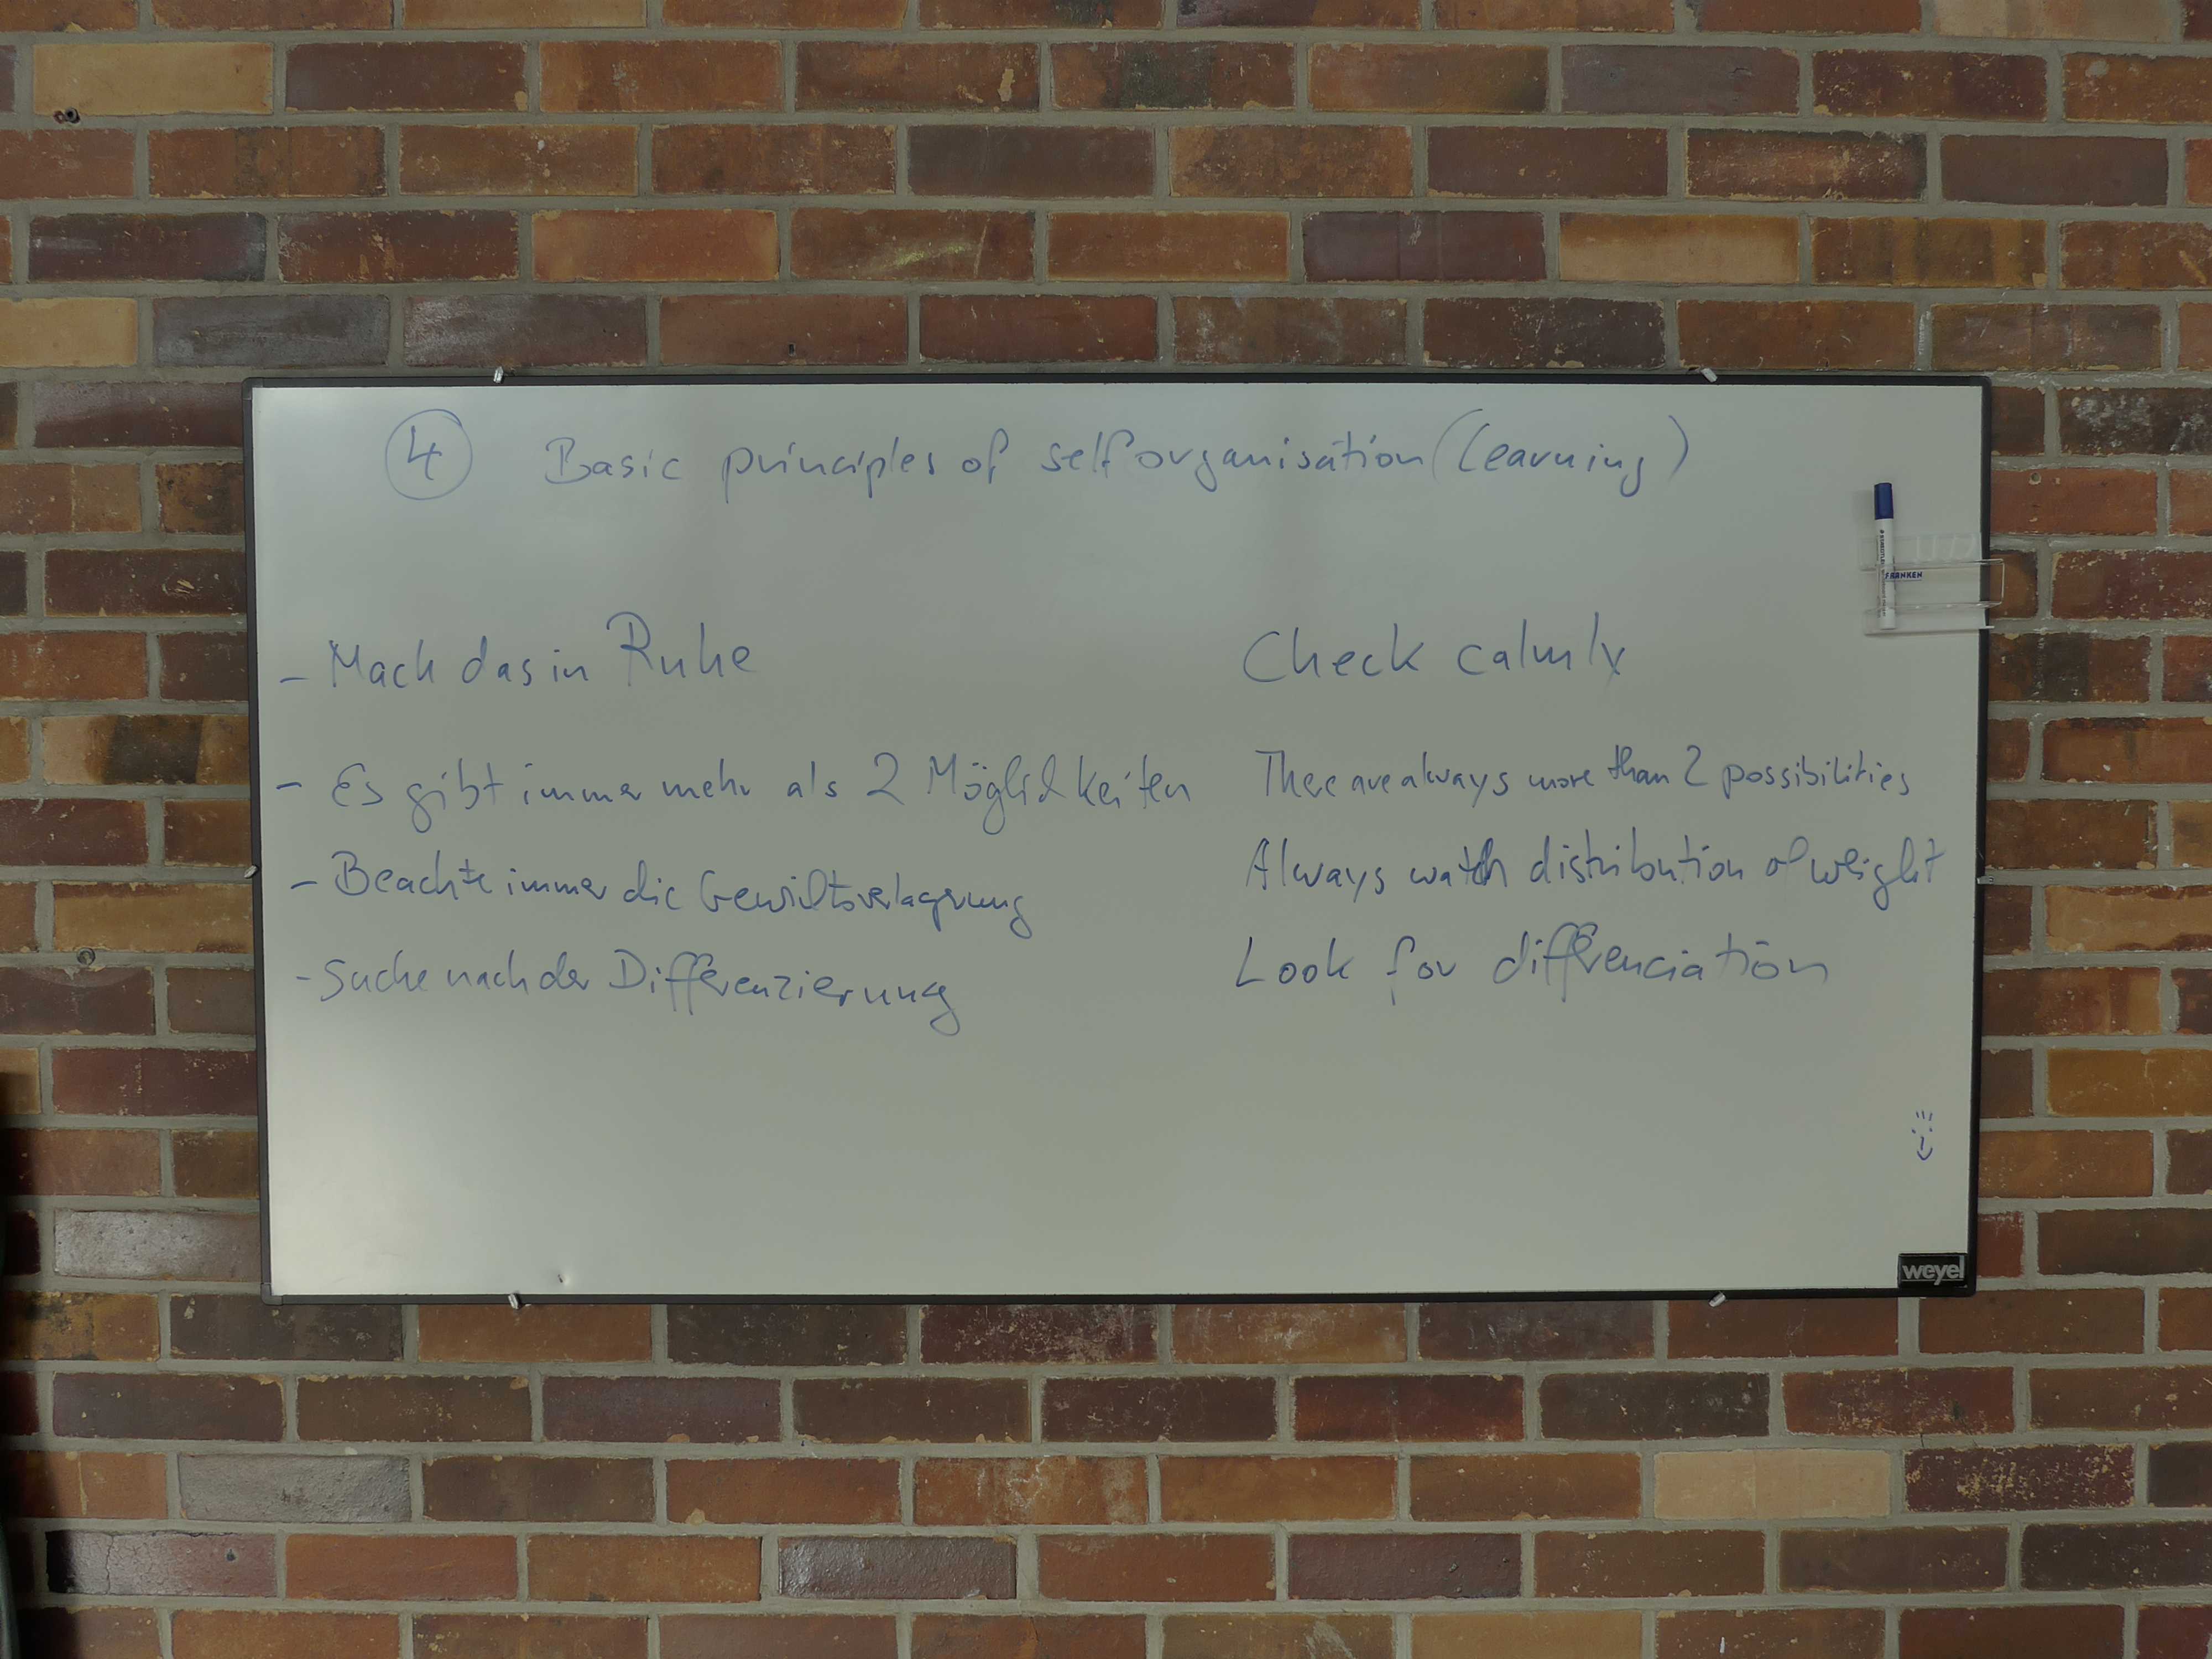 4 Basic principles of selforganisation (Learning)
- Mach das in Ruhe
Check calmly
- Es gibt immer mehr als 2 Möglichkeiten
There are always more than 2 possibilities
- Beachte immer die Gewichtsverlagerung
Always watch distribution of weight
- Suche nach der Differenzierung
Look for differenciation
FRANKEN
weyel